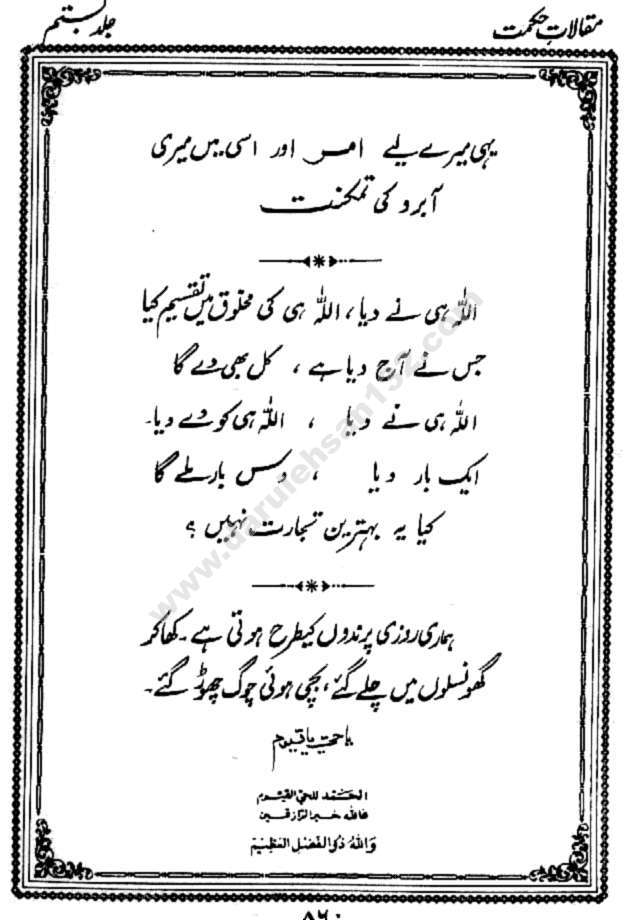 مقالاتِ حکمت
جلد بستم
یہی میرے لیے امر اور اسی میں میری
آبرو کی تمکنت
اللہ ہی نے دیا، اللہ ہی کی مخلوق میں تقسیم کیا
جس نے آج دیا ہے، کل بھی دے گا
اللہ ہی نے دیا، اللہ ہی کو دے دیا۔
ایک بار دیا، دس بار ملے گا
کیا یہ بہترین تجارت نہیں؟
ہماری روزی پرندوں کیطرح ہوتی ہے۔ کھا کر
گھونسلوں میں چلے گئے، بچی ہوئی چوگ چھوڑ گئے۔
یا حی یا قیوم
الحمد للحی القیوم
فاللہ خیر الرازقین
واللہ ذو الفضل العظیم
www.darulehsan132.com